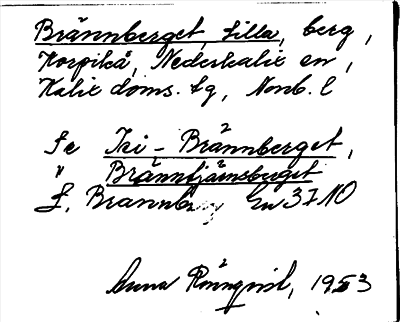 Brännberget, Lilla, berg,
Korpikå, Nederkalix en,
Kalix doms. lg, Norrb. l
Se Isi-Brännberget,
" Bränntjärnsberget
L. Brännb Ev 37 10
Anna Rönqvist, 1953